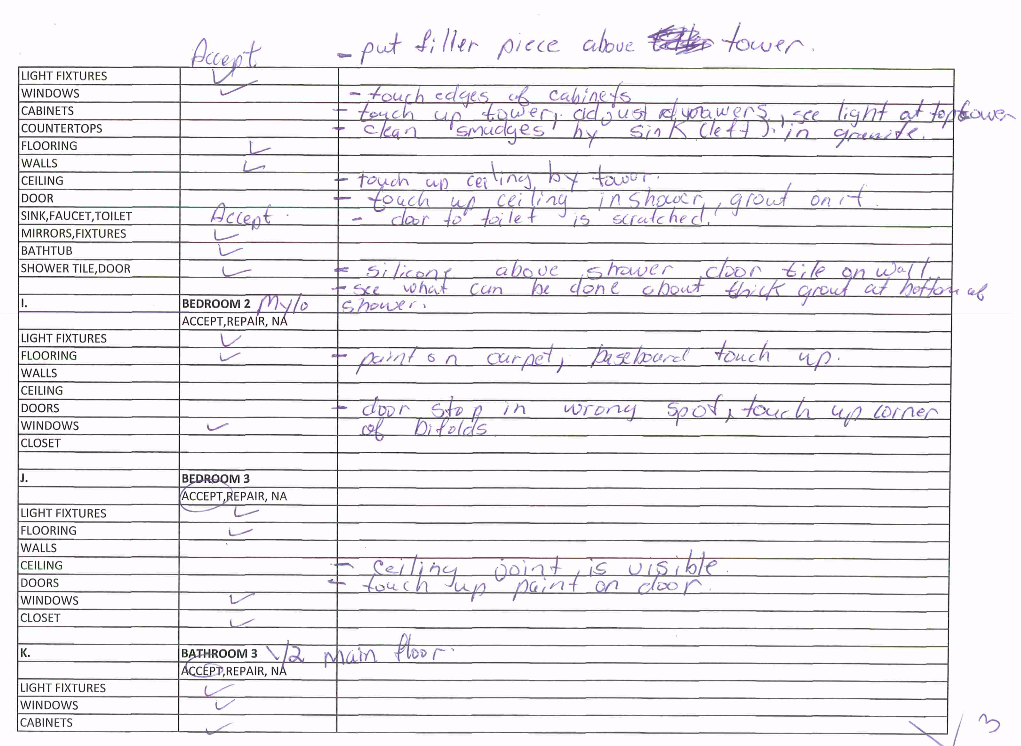 Accept - put filler piece above tower.
LIGHT FIXTURES ✓
WINDOWS ✓ - touch edges of cabinets
CABINETS - touch up tower, adjust drawers, see light at top tower
COUNTERTOPS - clean smudges by sink (left). in granite.
FLOORING ✓
WALLS ✓
CEILING - touch up ceiling by tower.
DOOR - touch up ceiling in shower, grout on it.
SINK,FAUCET,TOILET Accept. - door to toilet is scratched.
MIRRORS,FIXTURES ✓
BATHTUB ✓
SHOWER TILE,DOOR ✓ - silicone above shower door tile on wall
- see what can be done about thick grout at bottom of
I. BEDROOM 2 Mylo shower.
ACCEPT,REPAIR, NA
LIGHT FIXTURES ✓
FLOORING ✓ - paint on carpet, baseboard touch up.
WALLS
CEILING
DOORS - door stop in wrong spot, touch up corner
WINDOWS ✓ of bifolds
CLOSET
J. BEDROOM 3
ACCEPT,REPAIR, NA
LIGHT FIXTURES ✓
FLOORING ✓
WALLS
CEILING - ceiling joint is visible.
DOORS - touch up paint on door.
WINDOWS ✓
CLOSET ✓
K. BATHROOM 3 1/2 main floor.
ACCEPT,REPAIR, NA
LIGHT FIXTURES ✓
WINDOWS ✓
CABINETS ✓
3